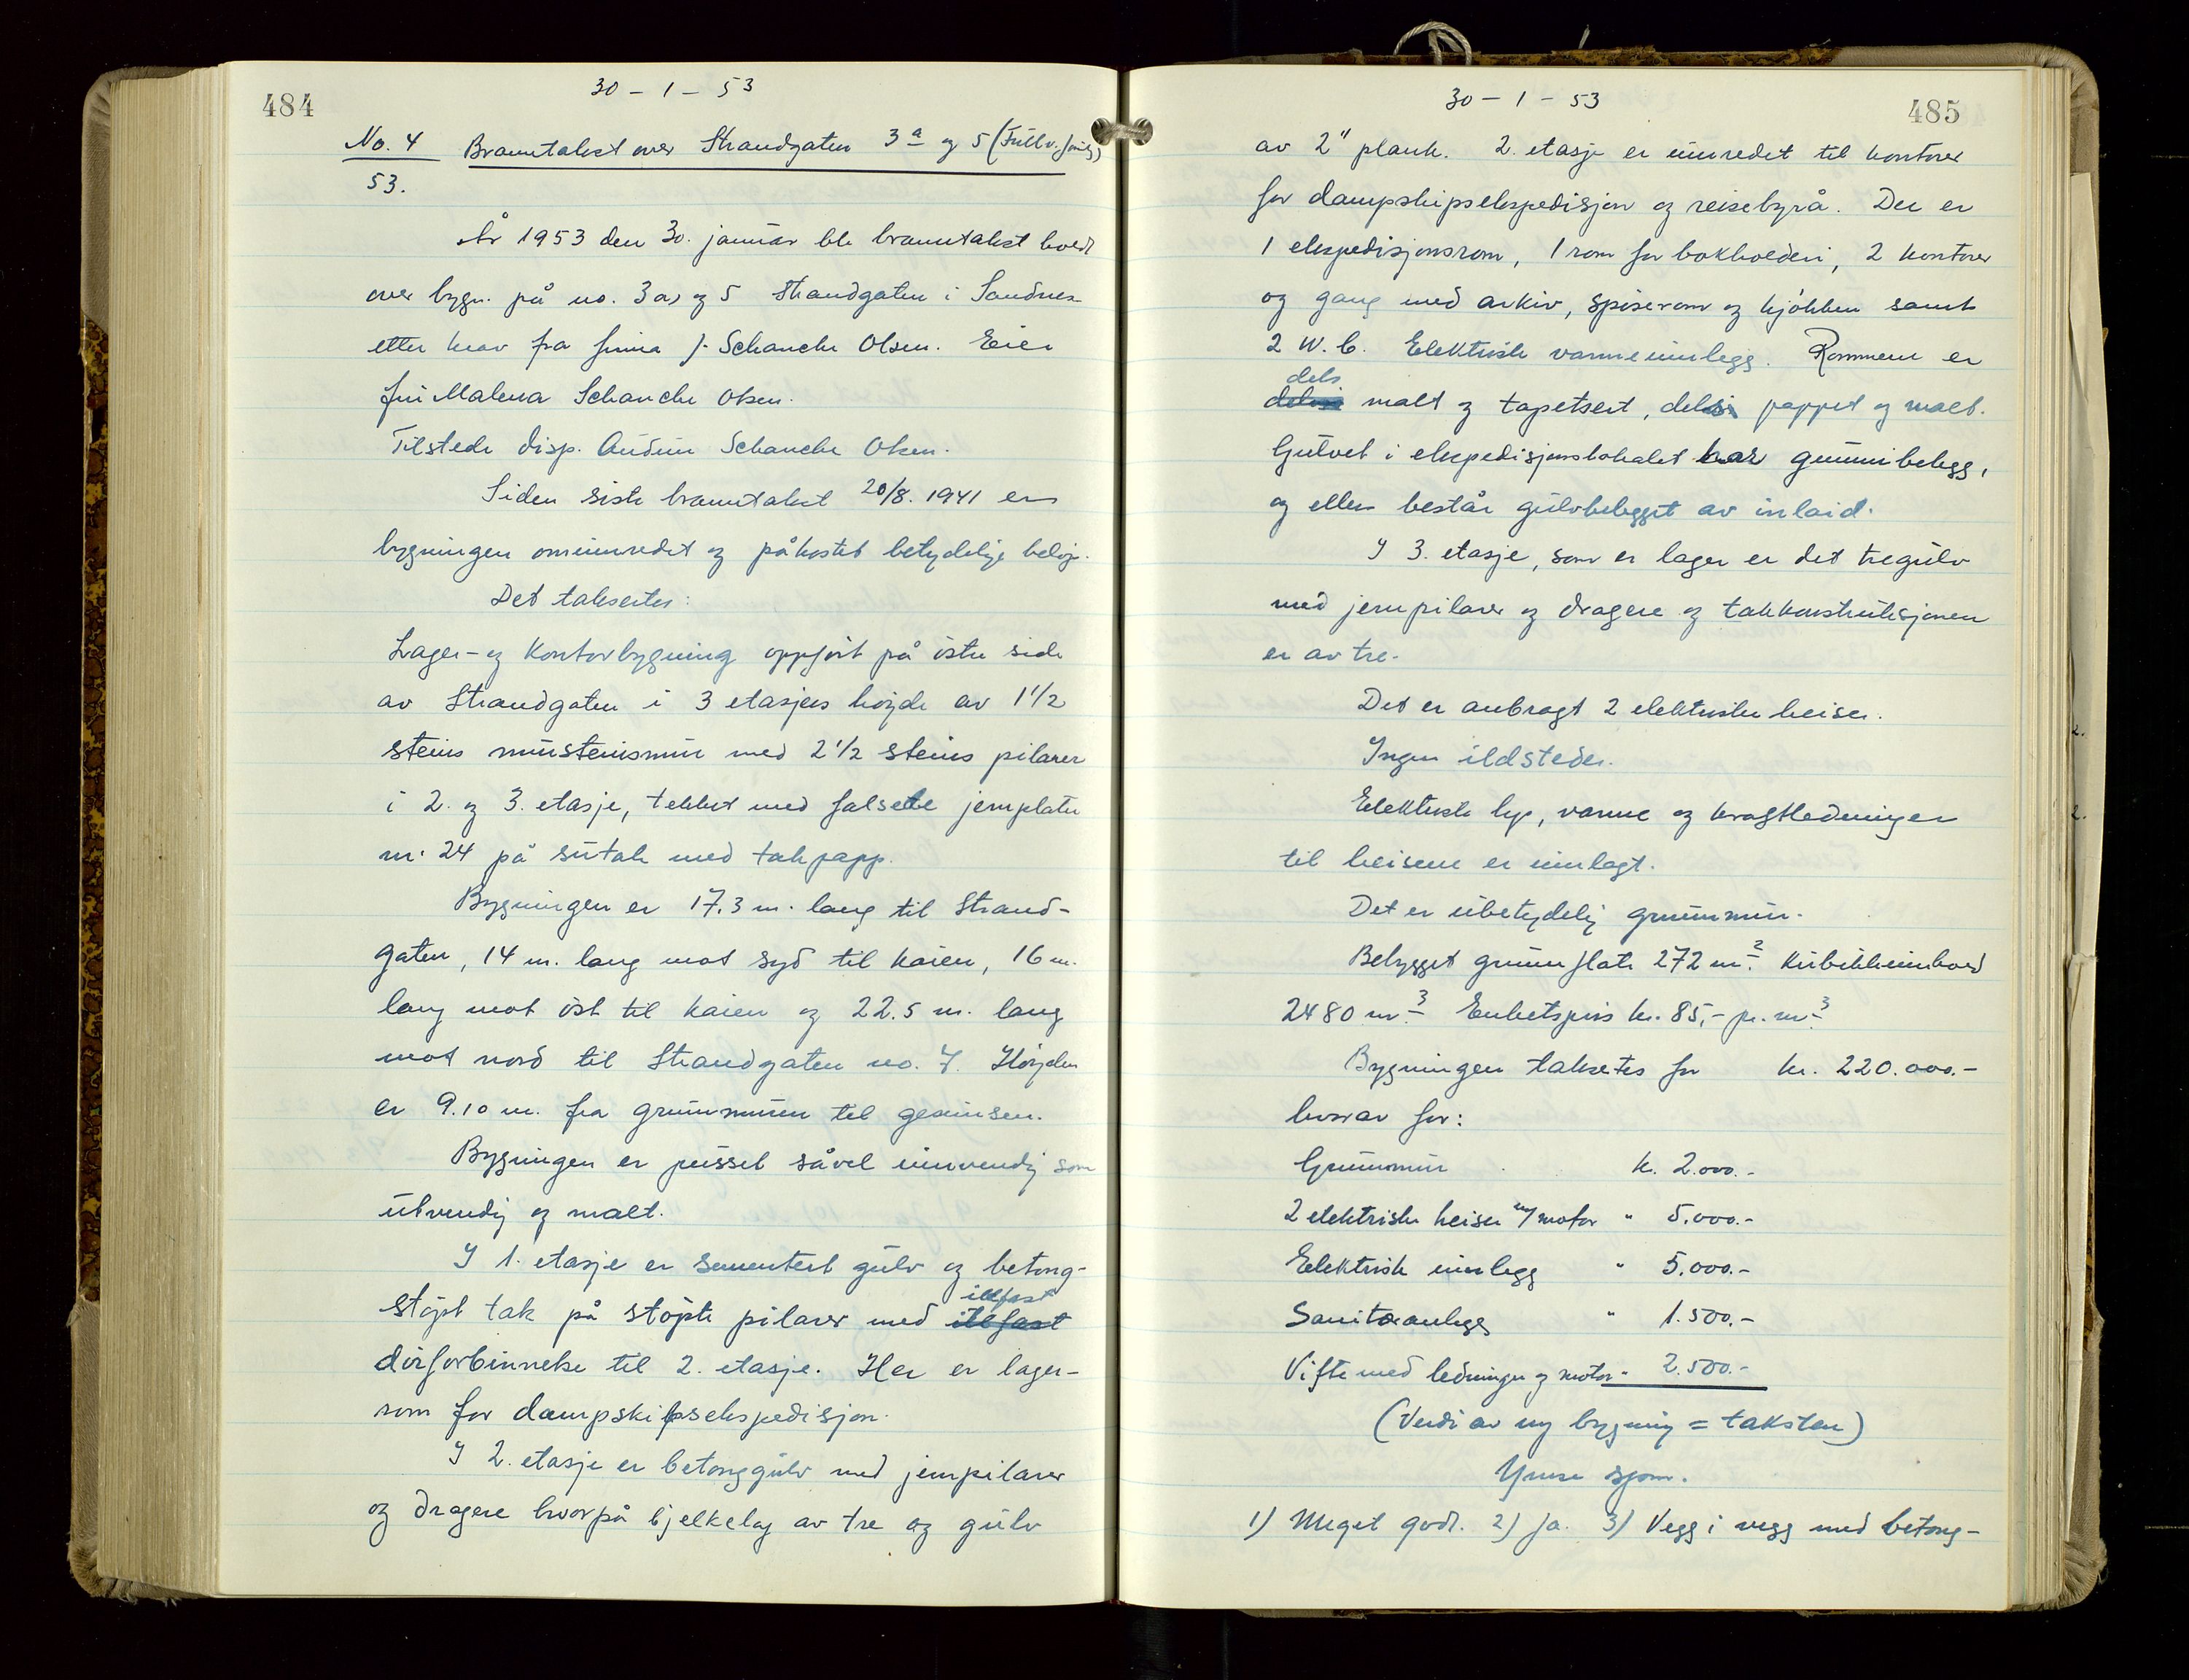 484
30 – 1 – 53
No. 4 Branntakst over Strandgaten 3a og 5 (Fullv.forsikr)
53.
År 1953 den 30. januar ble branntakst holdt
over bygn. på no. 3a) og 5 Strandgaten i Sandnes
etter krav fra firma J. Schanche Olsen. Eier
fru Malena Schanche Olsen.
Tilstede disp. Audun Schanche Olsen.
Siden siste branntakst 20/8. 1941 er
bygningen ominnredet og påkostet betydelige beløp.
Det takseres:
Lager- og Kontorbygning oppført på östre side
av Strandgaten i 3 etasjers höyde av 1 1/2
steins mursteinsmur med 2 1/2 steins pilarer
i 2. og 3. etasje, tekket med falsete jernplater
nr. 24 på sutak med takpapp.
Bygningen er 17.3 m. lang til Strand-
gaten, 14 m. lang mot syd til kaien, 16 m.
lang mot öst til kaien og 22.5 m. lang
mot nord til Strandgaten no. 7. Höyden
er 9.10 m. fra grunnmuren til gesimsen.
Bygningen er pusset såvel innvendig som
utvendig og malt.
I 1. etasje er sementert gulv og betong-
stöpt tak på stöpte pilarer med ildfast
dörforbinnelse til 2. etasje. Her er lager-
rom for dampskipsekspedisjon.
I 2. etasje er betonggulv med jernpilarer
og dragere hvorpå bjelkelag av tre og gulv
485
30 – 1 – 53
av 2" plank. 2. etasje er innredet til kontorer
for dampskipsekspedisjon og reisebyrå. Der er
1 ekspedisjonsrom, 1 rom for bokholderi, 2 kontorer
og gang med arkiv, spiserom og kjökken samt
2 W.C. Elektrisk varmeinnlegg. Rommene er
dels
malt og tapetsert, dels pappet og malt.
Gulvet i ekspedisjonslokalet har gummibelegg,
og ellers består gulvbelegget av inlaid.
I 3. etasje, som er lager er det tregulv
med jernpilarer og dragere og takkonstruksjonen
er av tre.
Det er anbragt 2 elektriske heiser.
Ingen ildsteder.
Elektrisk lys, varme og kraftledninger
til heisene er innlagt.
Det er ubetydelig grunnmur.
Bebygget grunnflate 272 m². Kubikkinnhold
2480 m³. Enhetspris kr. 85,- pr. m³.
Bygningen takseres for kr. 220.000.-
hvorav for:
Grunnmur k. 2.000.-
2 elektriske heiser m/motor " 5.000.-
Elektrisk innlegg " 5.000.-
Sanitæranlegg " 1.500.-
Vifte med ledninger og motor " 2.500.-
(Verdi av ny bygning = taksten)
Ymse spm.
1) Meget godt. 2) Ja. 3) Vegg i vegg med betong-